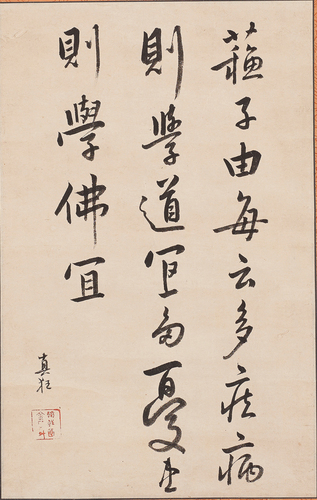 蘇子由每云多疾病
則學道宜多憂患
則學佛宜
真狂